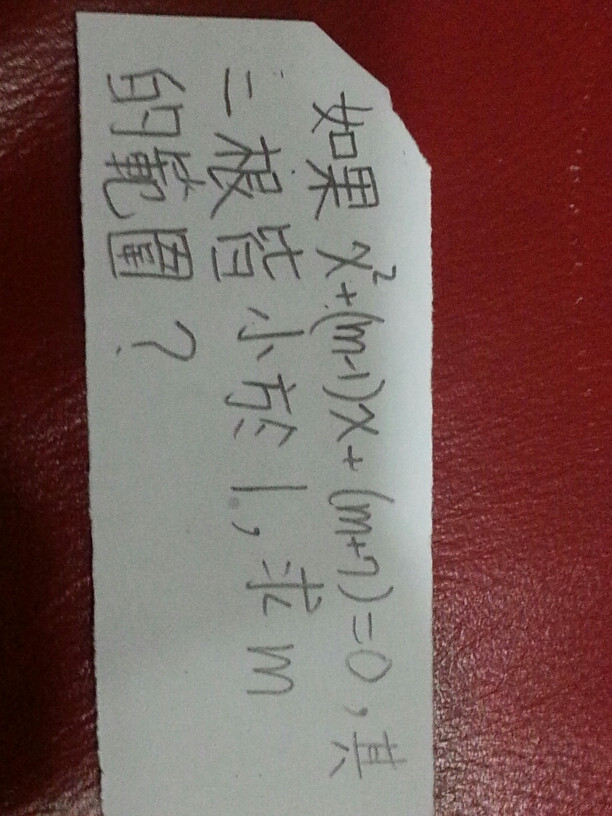 如果 x²+(m-1)x+(m+7)=0,其
二根皆小於1,求m
的範圍?